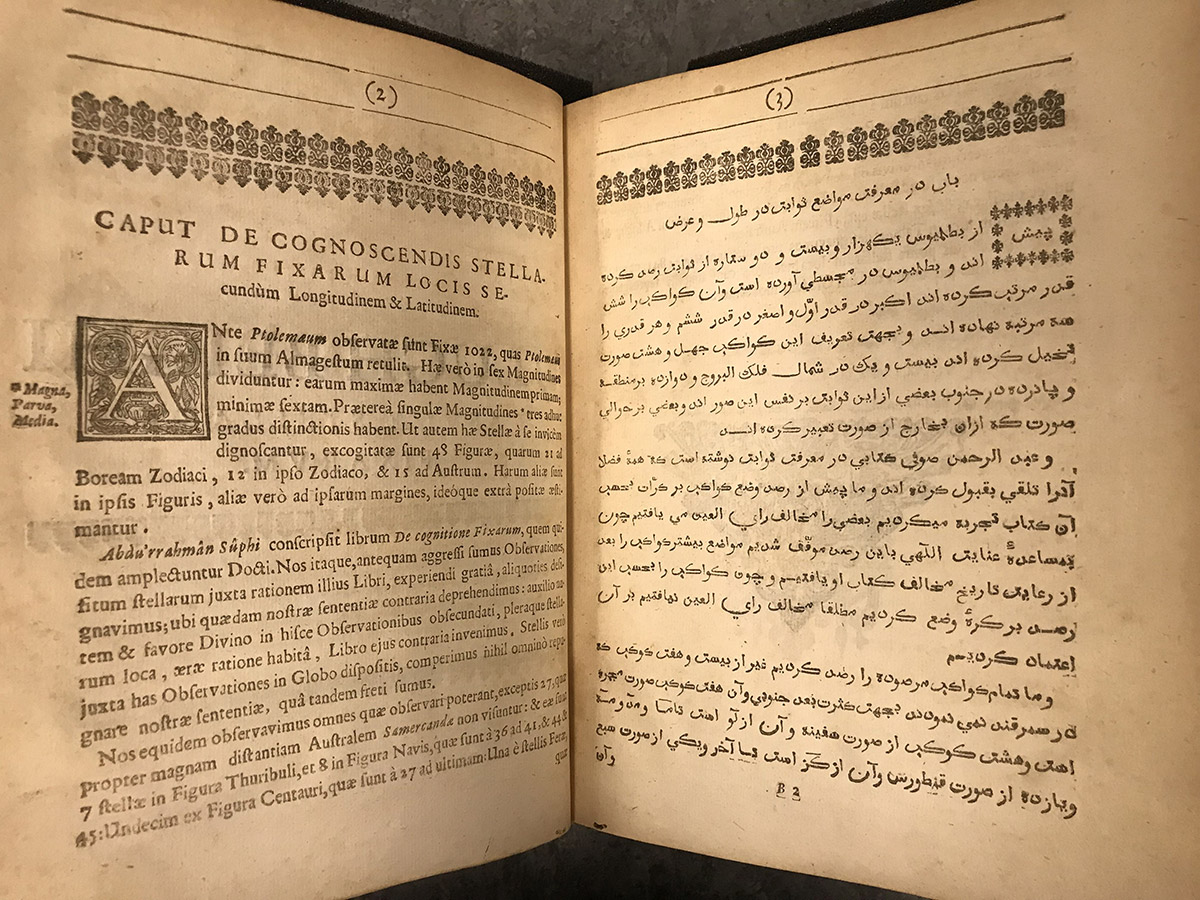 (2)
CAPUT DE COGNOSCENDIS STELLA-
RUM FIXARUM LOCIS SE-
cundùm Longitudinem & Latitudinem.
ANte Ptolemaum observatæ sunt Fixæ 1022, quas Ptolemaus
in suum Almagestum retulit. Hæ verò in sex Magnitudines
dividuntur: earum maximæ habent Magnitudinem primam;
minimæ sextam. Prætereà singulæ Magnitudines * tres adhuc
gradus distinctionis habent. Ut autem hæ Stellæ à se invicem
dignoscantur, excogitatæ sunt 48 Figuræ, quarum 21 ad
Boream Zodiaci, 12 in ipso Zodiaco, & 15 ad Austrum. Harum aliæ sunt
in ipsis Figuris, aliæ verò ad ipsarum margines, ideóque extrà positæ æsti-
mantur.
* Magna,
Parva,
Media.
Abdu'rrahmân Sûphi conscripsit librum De cognitione Fixarum, quem qui-
dem amplectuntur Docti. Nos itaque, antequam aggressi sumus Observationes,
situm stellarum juxta rationem illius Libri, experiendi gratiâ, aliquoties desi-
gnavimus; ubi quædam nostræ sententiæ contraria deprehendimus: auxilio au-
tem & favore Divino in hisce Observationibus obsecundati, pleraque stella-
rum loca, æræ ratione habitâ, Libro ejus contraria invenimus. Stellis verò
juxta has Observationes in Globo dispositis, comperimus nihil omninò repu-
gnare nostræ sententiæ, quâ tandem freti sumus.
Nos equidem observavimus omnes quæ observari poterant, exceptis 27, quæ
propter magnam distantiam Australem Samercandæ non visuntur: & eæ sunt
7 stellæ in Figura Thuribuli, et 8 in Figura Navis, quæ sunt à 36 ad 41, & 44 &
45: Undecim ex Figura Centauri, quæ sunt à 27 ad ultimam: Una è stellis Feræ,
quæ
(3)
باب در معرفت مواضع ثوابت در طول و عرض
پیش از بطلمیوس یکهزار و بیست و دو ستاره از ثوابت رصد کرده
اند و بطلمیوس در مجسطی آورده است وآن کواکب را شش
قدر مرتب کرده اند اکبر در قدر اول و اصغر در قدر ششم و هر قدری را
سه مرتبه نهاده اند و بجهت تعریف این کواکب چهل و هشت صورت
تخیل کرده اند بیست و یک در شمال فلک البروج و دوازده بر منطقه
و پانزده در جنوب بعضی از این ثوابت بر نفس این صور اند و بعضی بر حوالی
صورت که ازان بخارج از صورت تعبیر کرده اند
و عبد الرحمن صوفی کتابی در معرفت ثوابت نوشته است که همهٔ فضلا
آنرا تلقی بقبول کرده اند و ما پیش از رصد وضع کواکب بر کرات بحسب
آن کتاب تجربه میکردیم بعضی را مخالف رای العین می یافتیم چون
بمساعدهٔ عنایت اللهی باین رصد موفق شدیم مواضع بیشتر کواکب را بعد
از رعایت تاریخ مخالف کتاب او یافتیم و چون کواکب را بحسب این
رصد بر کرهٔ وضع کردیم مطلقا مخالف رای العین نیافتیم بر آن
اعتماد کردیم
و ما تمام کواکب مرصوده را رصد کردیم غیر از بیست و هفت کوکب که
در سمرقند نمی نمودند بجهت کثرت بعد جنوبی وآن هفت کوکب صورت مجمره
است وهشت کوکب از صورت سفینه و آن از لو است تاما و مد و مه
ویازده از صورت قنطورس وآن از کز است تا آخر ویکی از صورت سبع
B 2
وآن